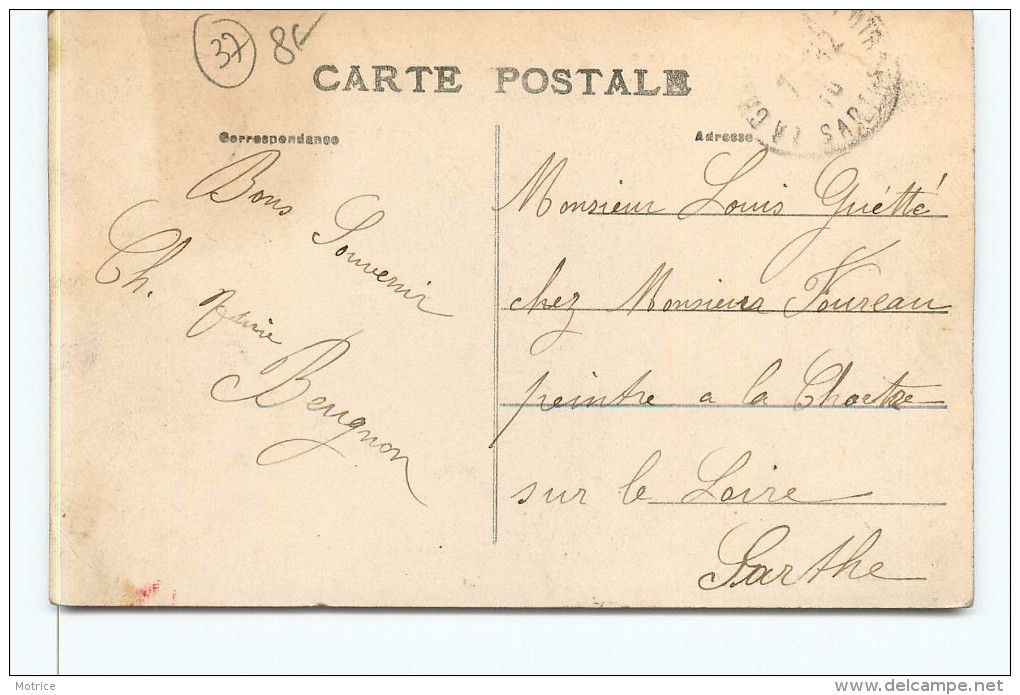 37 8€
CARTE POSTALE
Correspondance
Adresse
Bons
Souvenir
Ch.
Beugnon
Monsieur Louis Guétté
chez Monsieur Foureau
peintre a la Chartre
sur le Loire
Sarthe
LA CH SARTHE
Motrice
http://motrice.delcampe.net